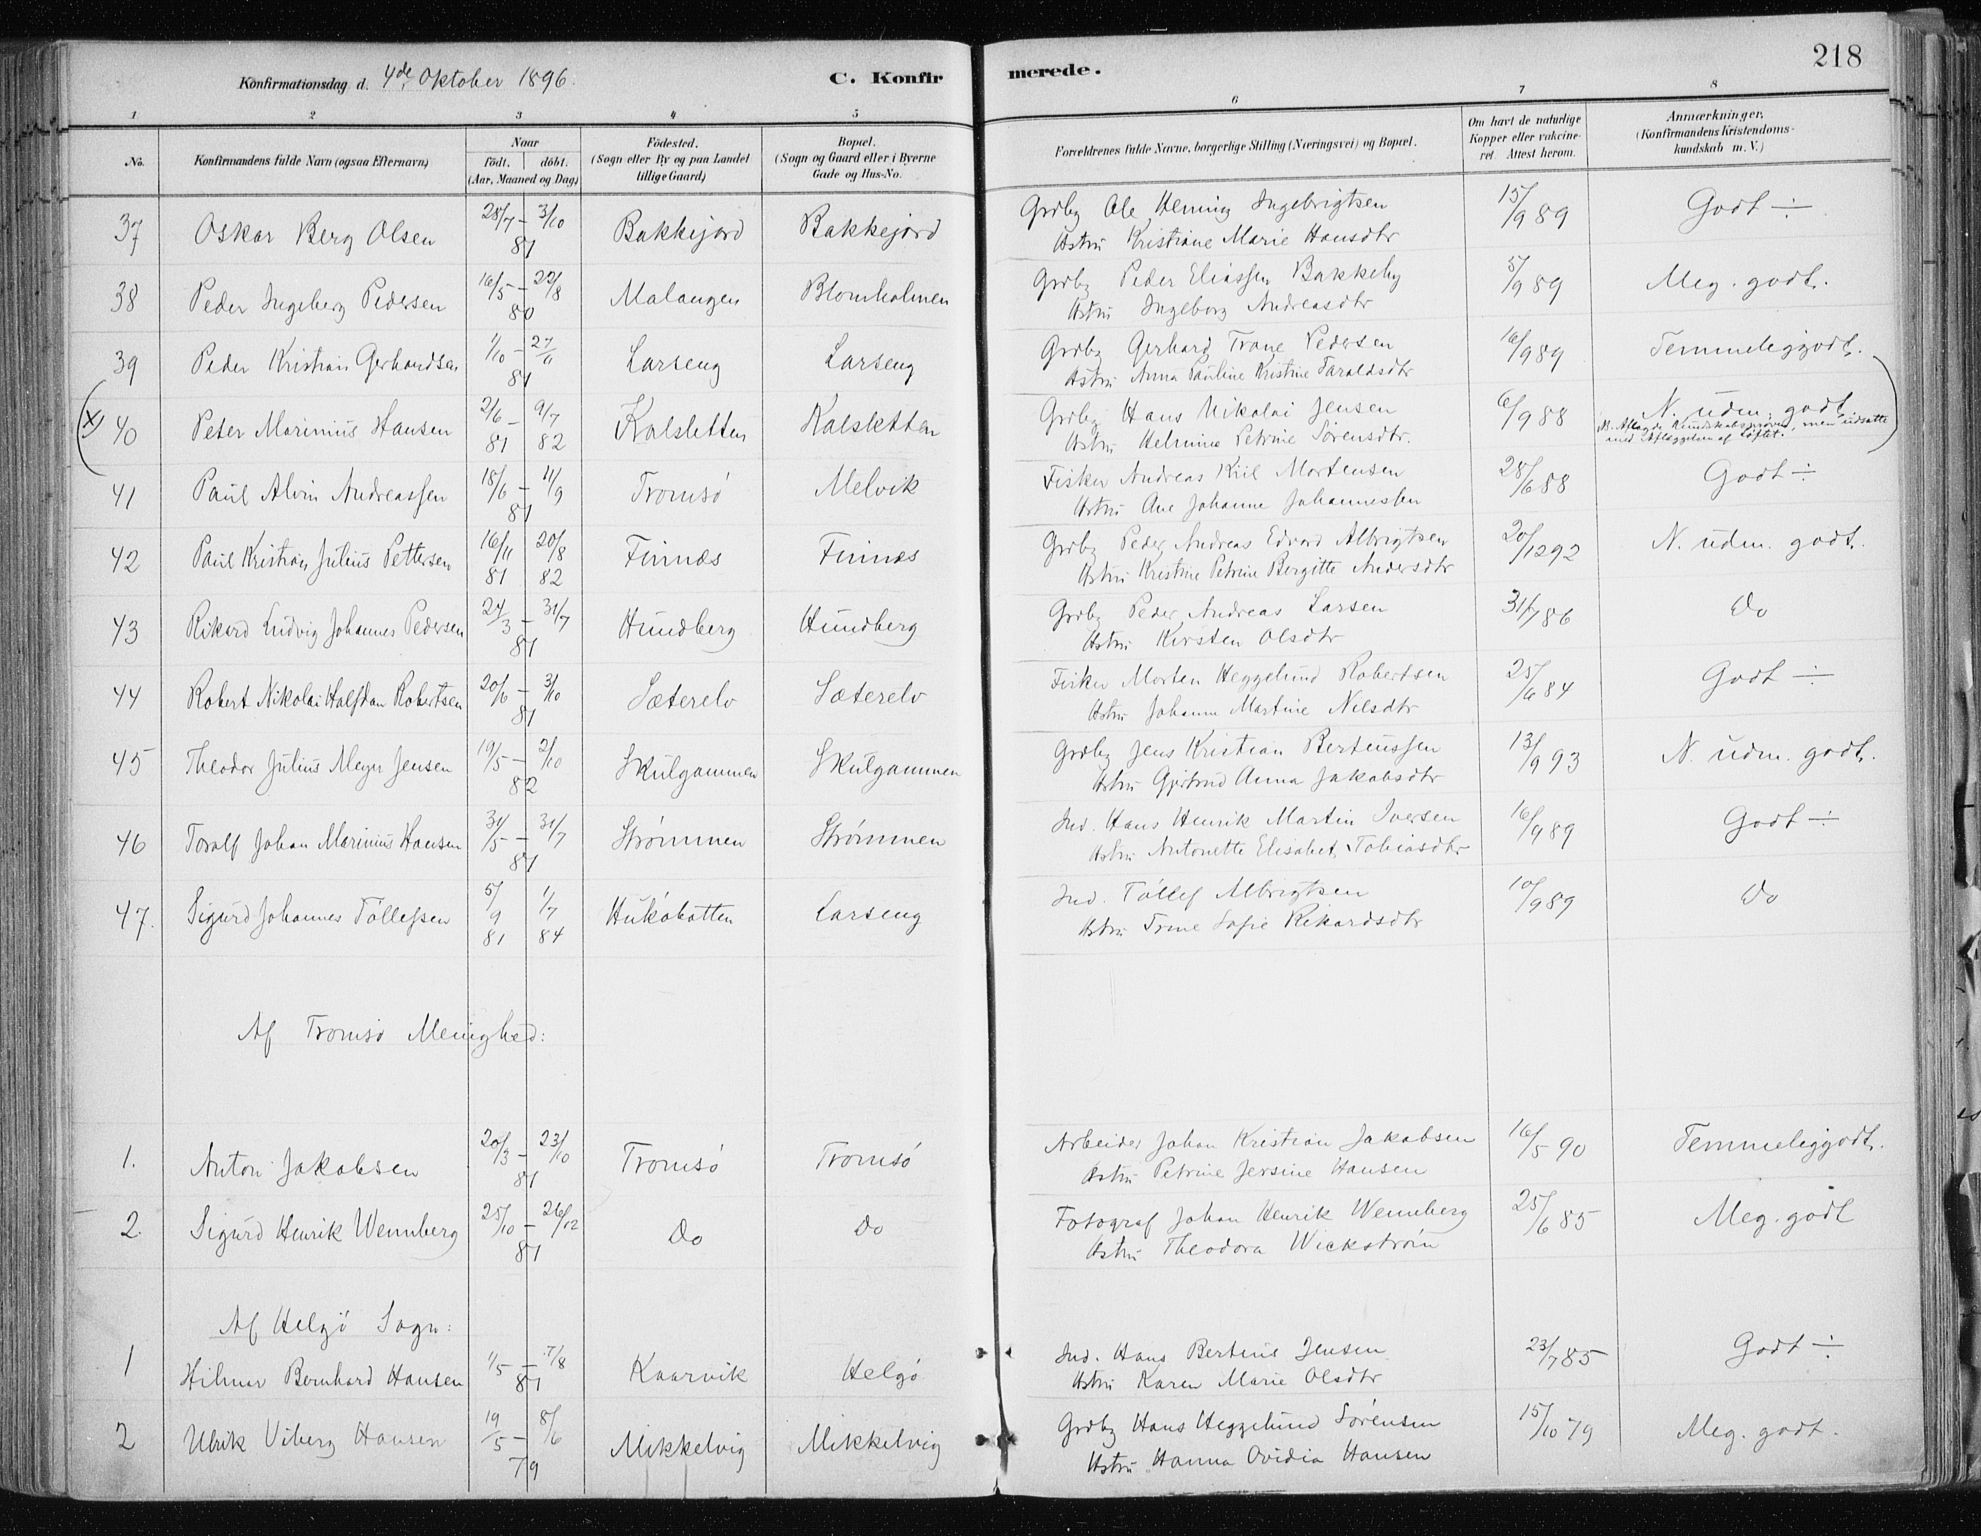 Konfirmationsdag d. 4de Oktober 1896. C. Konfirmerede. 218
1 2 3 4 5 6 7 8
No. Konfirmandens fulde Navn (ogsaa Efternavn) Naar født. døbt. (Aar, Maaned og Dag) Fødested. (Sogn eller By og paa Landet tillige Gaard) Bopæl. (Sogn og Gaard eller i Byerne Gade og Hus-No. Forældrenes fulde Navne, borgerlige Stilling (Næringsvei) og Bopæl. Om havt de naturlige Kopper eller vakcineret. Attest herom. Anmærkninger. (Konfirmandens Kristendomskundskab m. V.)
37 Oskar Berg Olsen 28/7 – 3/10 81 Bakkejord Bakkejord Grdbg Ole Henning Ingebrigtsen 15/9 89 Godt ÷
Hstru Kristiane Marie Hansdtr
38 Peder Ingeberg Pedersen 16/5 – 22/8 80 Malangen Blomholmen Grdbg Peder Eliassen Bakkeby 5/9 89 Meg. godt.
Hstru Ingeborg Andreasdtr
39 Peder Kristian Gerhardsen 1/10 – 27/11 81 Larseng Larseng Grdbg Gerhard Trane Pedersen 16/9 89 Temmeliggodt.
Hstru Anna Pauline Kristine Taraldsdtr
(x) 40 Peter Marinius Hansen 2/6 81 – 9/7 82 Kalsletten Kalsletten Grdbg Hans Nikolai Jensen 6/9 88 N. udm. godt
Hstru Helmine Petrine Sørensdtr. NB. Aflagde Kundskabsprøven, men udsatte
med Aflæggelsen af Løftet.
41 Paul Alvin Andreassen 18/6 – 11/9 81 Tromsø Melvik Fisker Andreas Kiil Mortensen 28/6 88 Godt ÷
Hstru Ane Johanne Johannesen
42 Paul Kristian Julius Pettersen 16/11 81 20/8 82 Finnæs Finnæs Grdbg Peder Andreas Edvard Albrigtsen 20/12 92 N. udm. godt.
Hstru Kristine Petrine Bergitte Andersdtr
43 Rikard Ludvig Johannes Pedersen 24/3 – 31/7 81 Hundberg Hundberg Grdbg Peder Andreas Larsen 31/7 86 Do
Hstru Kirsten Olsdtr
44 Robert Nikolai Halfdan Robertsen 20/6 – 3/10 81 Sæterelv Sæterelv Fisker Morten Heggelund Robertsen 25/6 84 Godt ÷
Hstru Johanne Martine Nilsdtr
45 Theodor Julius Meyer Jensen 19/5 – 2/10 82 Skulgammen Skulgammen Grdbg Jens Kristian Berteussen 13/9 93 N. udm. godt.
Hstru Gjertrud Anna Jakobsdtr
46 Toralf Johan Marinius Hansen 31/5 – 31/7 81 Strømmen Strømmen Ind. Hans Henrik Martin Iversen 16/9 89 Godt ÷
Hstru Antonette Elisabet Tobiasdtr
47. Sigurd Johannes Tøllefsen 5/9 81 1/7 84 Hukøbotten Larseng Ind. Tøllef Albrigtsen 10/9 89 Do
Hstru Trine Sofie Rikardsdtr
Af Tromsø Menighed:
1. Anton Jakobsen 20/3 – 23/10 81 Tromsø Tromsø Arbeider Johan Kristian Jakobsen 16/5 90 Temmeliggodt.
Hstru Petrine Jersine Hansen
2. Sigurd Henrik Wennberg 25/10 – 26/12 81 Do Do Fotograf Johan Henrik Wennberg 25/6 85 Meg. godt
Hstru Theodora Wickstrøm
Af Helgø Sogn:
1 Hilmar Bernhard Hansen 1/5 – 7/8 81 Kaarvik Helgø Ind. Hans Bertius Jensen 23/7 85 Godt ÷
Hstru Karen Marie Olsdtr
2 Ulrik Viberg Hansen 19/5 – 8/6 79 Mikkelvig Mikkelvig Grdbg Hans Heggelund Sørensen 15/10 79 Meg. godt.
Hstru Hanna Ovidia Hansen